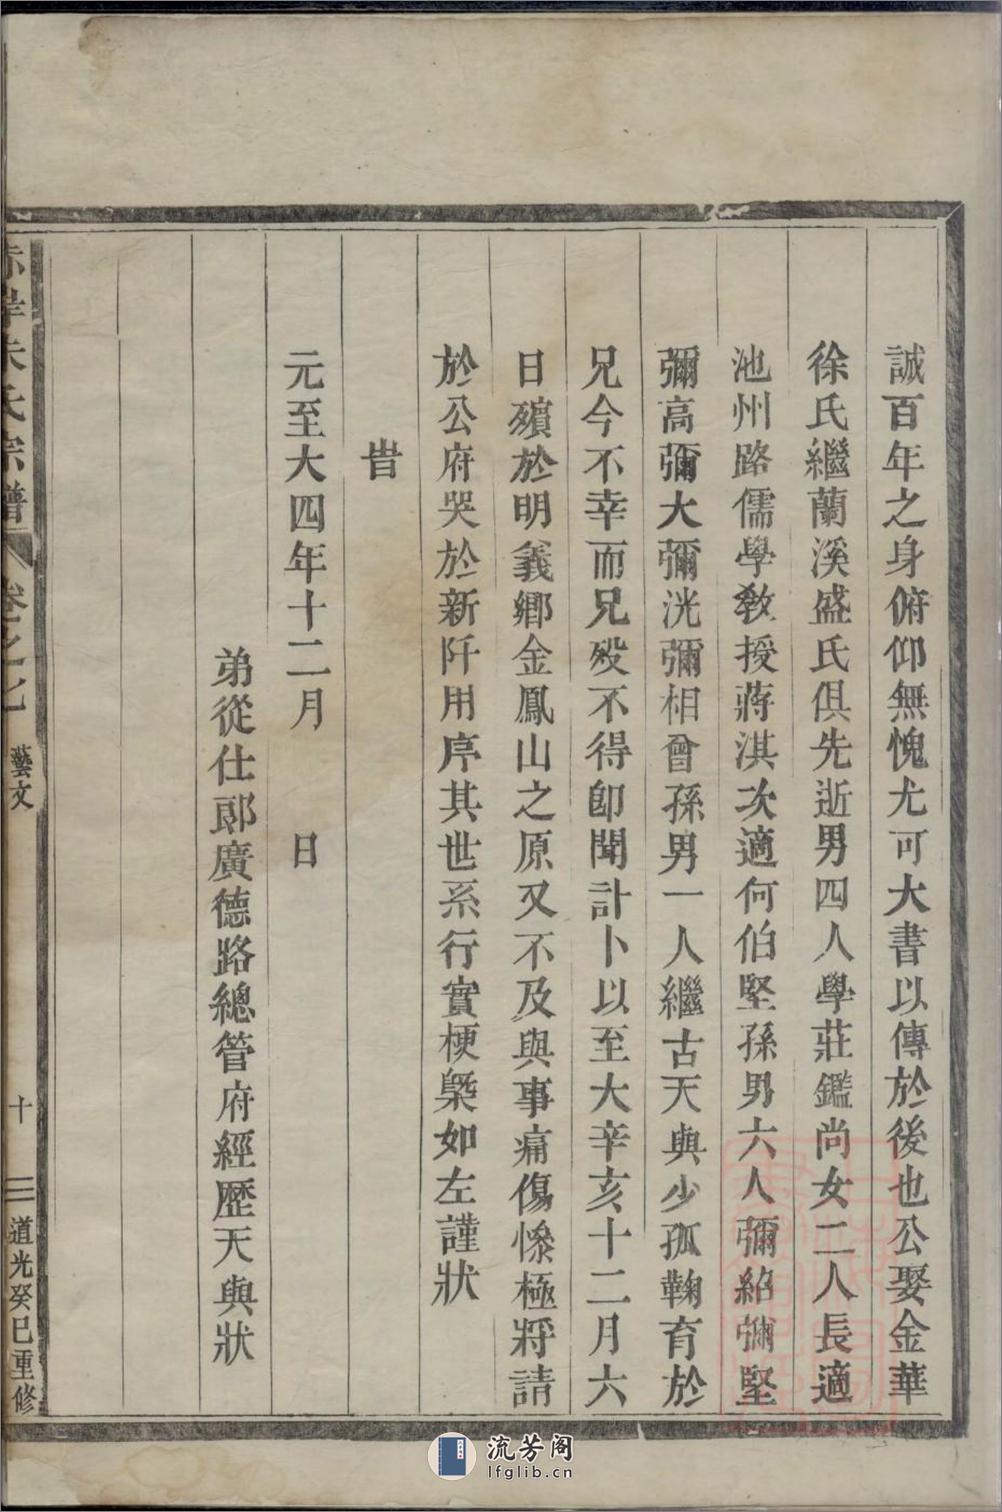 誠百年之身俯仰無愧尤可大書以傳於後也公娶金華
徐氏繼蘭溪盛氏俱先逝男四人學莊鑑尚女二人長適
池州路儒學教授蔣淇次適何伯堅孫男六人彌紹彌堅
彌高彌大彌洸彌相曾孫男一人繼古天與少孤鞠育於
兄今不幸而兄歿不得卽聞訃卜以至大辛亥十二月六
日殯於明義鄉金鳳山之原又不及與事痛傷慘極將請
於公府哭於新阡用序其世系行實梗槩如左謹狀
旹
元至大四年十二月 日
弟從仕郎廣德路總管府經歷天與狀
赤岸朱氏宗譜 卷之七 藝文 十 道光癸巳重修
流芳阁
lfglib.cn